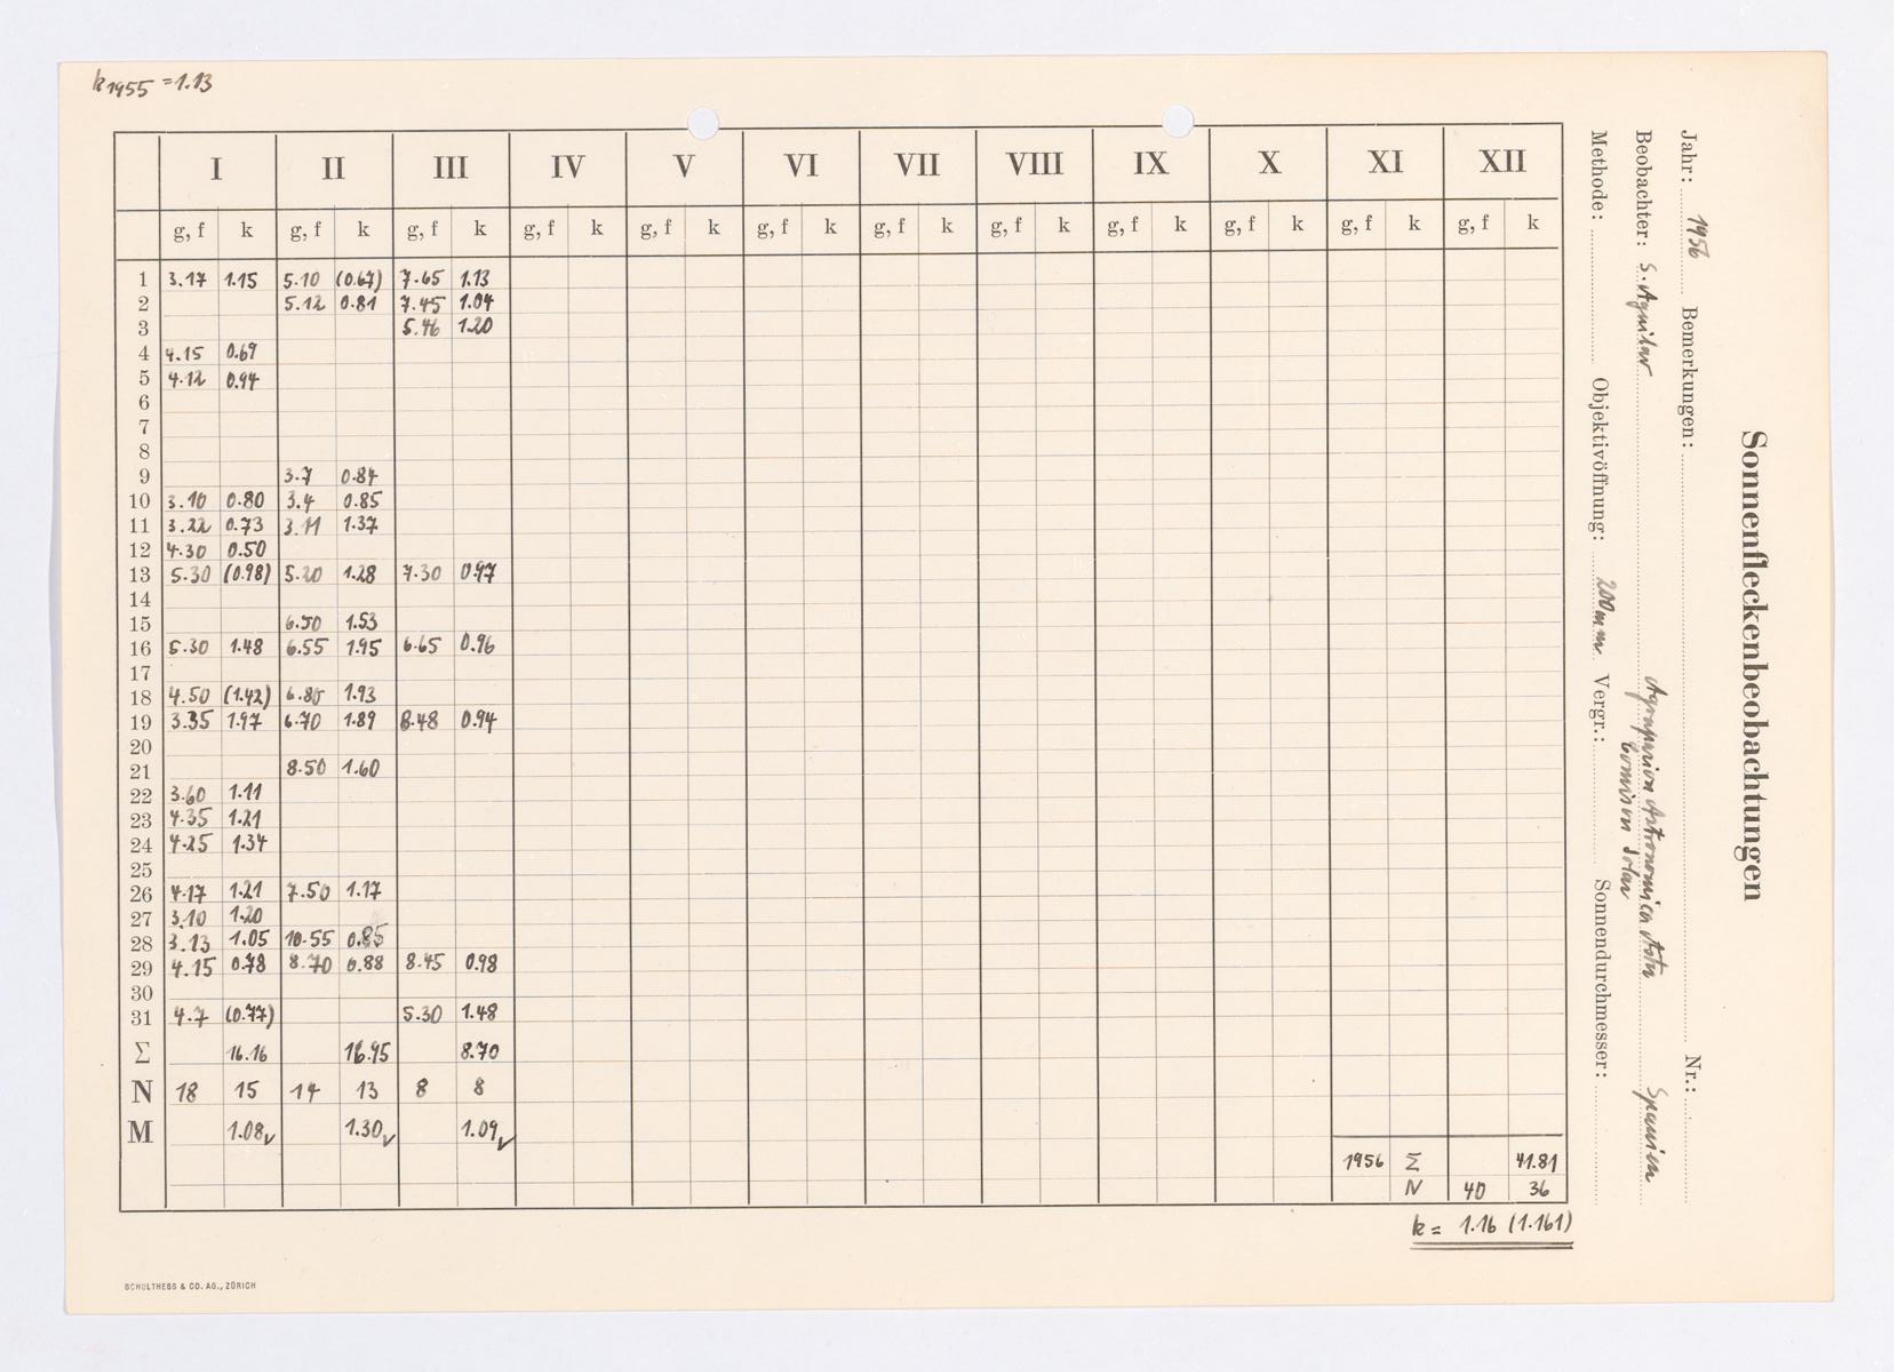 k1955 = 1.13
Sonnenfleckenbeobachtungen
Jahr: 1956 Bemerkungen: Nr.:
Beobachter: S. Aguilar Agrupacion Astronomica Aster Spanien
Comision Solar
Methode: Objektivöffnung: 200 mm Vergr.: Sonnendurchmesser:
I II III IV V VI VII VIII IX X XI XII
g, f k g, f k g, f k g, f k g, f k g, f k g, f k g, f k g, f k g, f k g, f k g, f k
1 3.17 1.15 5.10 (0.67) 7.65 1.13
2 5.12 0.81 7.45 1.04
3 5.46 1.20
4 4.15 0.69
5 4.12 0.94
6
7
8
9 3.7 0.84
10 3.10 0.80 3.4 0.85
11 3.22 0.73 3.11 1.37
12 4.30 0.50
13 5.30 (0.98) 5.20 1.28 7.30 0.97
14
15 6.50 1.53
16 5.30 1.48 6.55 1.95 6.65 0.96
17
18 4.50 (1.42) 6.85 1.93
19 3.35 1.97 6.70 1.89 8.48 0.94
20
21 8.50 1.60
22 3.60 1.11
23 4.35 1.21
24 4.25 1.34
25
26 4.17 1.21 7.50 1.17
27 3.10 1.20
28 3.13 1.05 10.55 0.85
29 4.15 0.78 8.70 0.88 8.45 0.98
30
31 4.7 (0.77) 5.30 1.48
Σ 16.16 16.95 8.70
N 18 15 14 13 8 8
M 1.08✓ 1.30✓ 1.09✓
1956 Σ 41.81
N 40 36
k = 1.16 (1.161)
SCHULTHESS & CO. AG., ZÜRICH